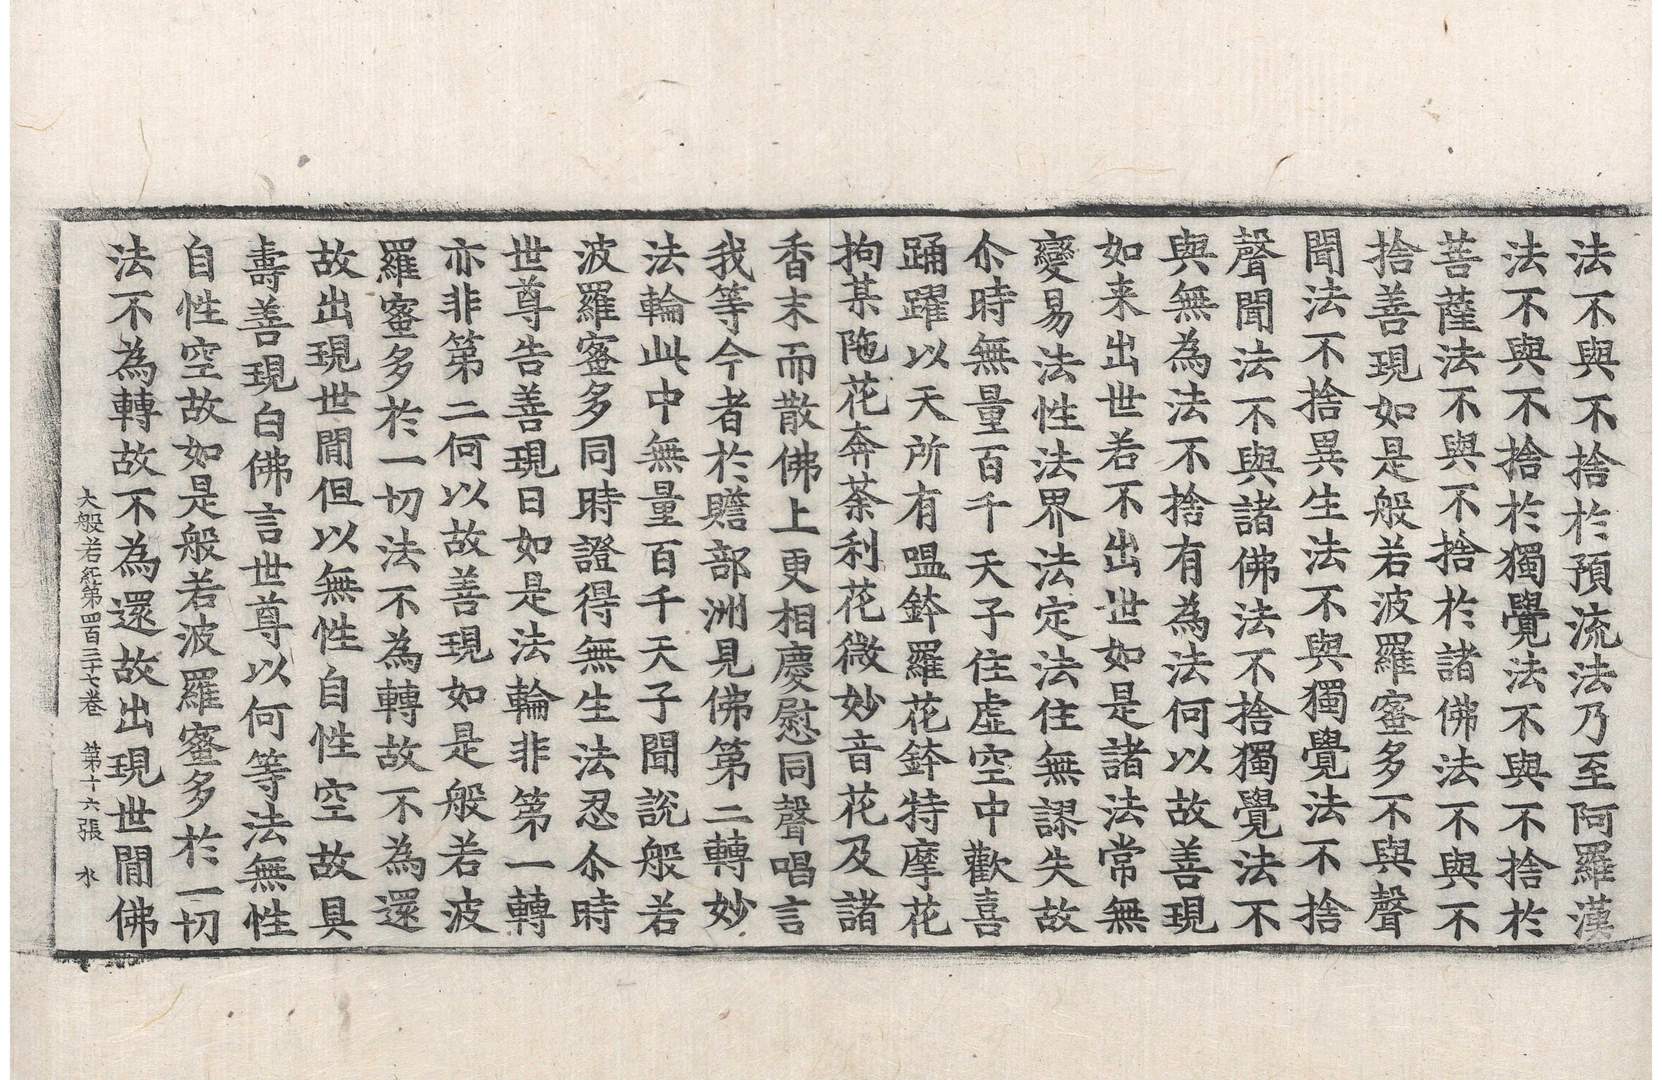 法不與不捨於預流法乃至阿羅漢
法不與不捨於獨覺法不與不捨於
菩薩法不與不捨於諸佛法不與不
捨善現如是般若波羅蜜多不與聲
聞法不捨異生法不與獨覺法不捨
聲聞法不與諸佛法不捨獨覺法不
與無為法不捨有為法何以故善現
如来出世若不出世如是諸法常無
變易法性法界法定法住無謬失故
尒時無量百千天子住虛空中歡喜
踊躍以天所有嗢鉢羅花鉢特摩花
拘某陁花奔荼利花微妙音花及諸
香末而散佛上更相慶慰同聲唱言
我等今者於贍部洲見佛第二轉妙
法輪此中無量百千天子聞說般若
波羅蜜多同時證得無生法忍尒時
世尊告善現曰如是法輪非第一轉
亦非第二何以故善現如是般若波
羅蜜多於一切法不為轉故不為還
故出現世間但以無性自性空故具
壽善現白佛言世尊以何等法無性
自性空故如是般若波羅蜜多於一切
法不為轉故不為還故出現世間佛
大般若經第四百三十七卷 第十六張 水